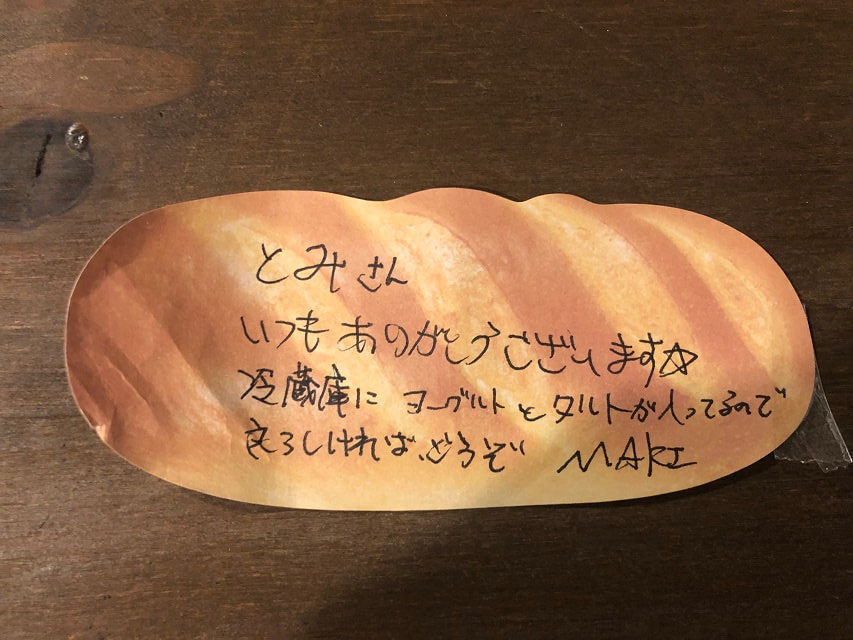 とみさん
いつもありがとうございます☆
冷蔵庫に ヨーグルトとタルトが入ってるので
良ろしければ、どうぞ MAKI